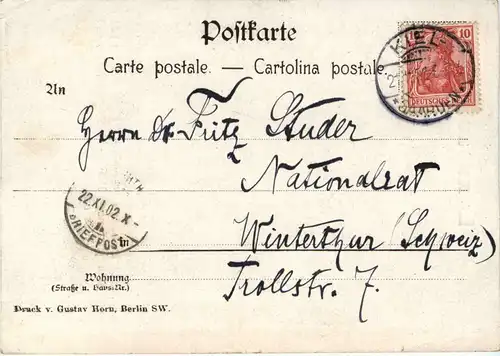 Postkarte
Carte postale. — Cartolina postale
10
DEUTSCHES
KIEL
*GAARDEN*
An
Herrn Dr Fritz Studer
Nationalrat
22.XI.02.X-
BRIEFPOST
in
Winterthur (Schweiz)
Wohnung
(Straße u. Haus-Nr.)
Trollstr. 7.
Druck v. Gustav Horn, Berlin SW.